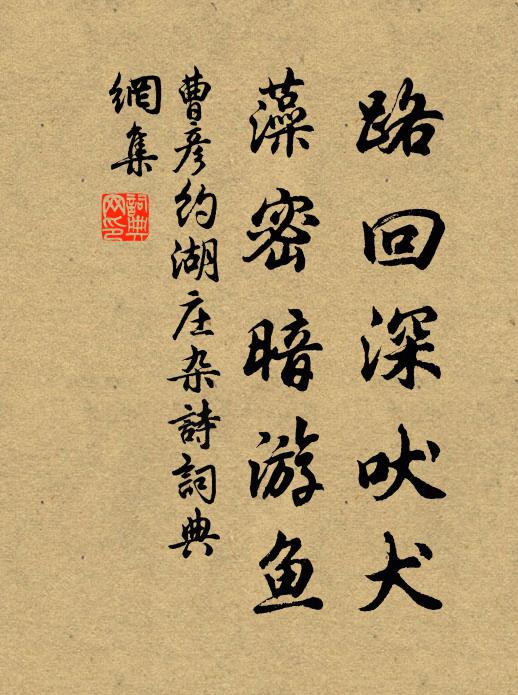 路回深吠犬
藻密暗游鱼
曹彦约湖庄杂詩詞典
網集
詞典
网印